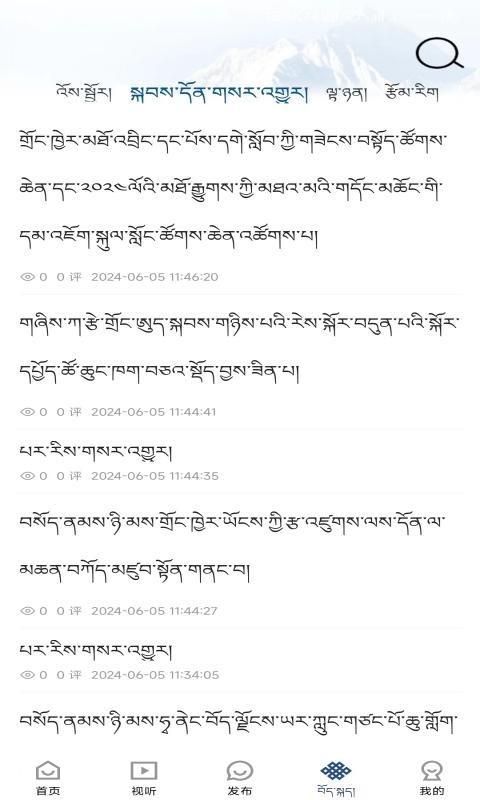 འོས་སྦྱོར། སྐབས་དོན་གསར་འགྱུར། ལྟ་ཉན། རྩོམ་རིག
གྲོང་ཁྱེར་མཐོ་འབྲིང་དང་པོས་དགེ་སློབ་ཀྱི་གཟེངས་བསྟོད་ཚོགས་
ཆེན་དང་༢༠༢༤ལོའི་མཐོ་རྒྱུགས་ཀྱི་མཐའ་མའི་གདོང་མཆོང་གི་
དམ་འཇོག་སྐུལ་སློང་ཚོགས་ཆེན་འཚོགས་པ།
0 0 评 2024-06-05 11:46:20
གཞིས་ཀ་རྩེ་གྲོང་ཨུད་སྐབས་གཉིས་པའི་རེས་སྐོར་བདུན་པའི་སྐོར་
དཔྱོད་ཚོ་ཆུང་ཁག་བཅའ་སྡོད་བྱས་ཟིན་པ།
0 0 评 2024-06-05 11:44:41
པར་རིས་གསར་འགྱུར།
0 0 评 2024-06-05 11:44:35
བསོད་ནམས་ཉི་མས་གྲོང་ཁྱེར་ཡོངས་ཀྱི་རྩ་འཛུགས་ལས་དོན་ལ་
མཆན་བཀོད་མཛུབ་སྟོན་གནང་བ།
0 0 评 2024-06-05 11:44:27
པར་རིས་གསར་འགྱུར།
0 0 评 2024-06-05 11:34:05
བསོད་ནམས་ཉི་མས་ཧྭ་ནེང་བོད་ལྗོངས་ཡར་ཀླུང་གཙང་པོ་ཆུ་གློག་
首页 视听 发布 བོད་སྐད། 我的